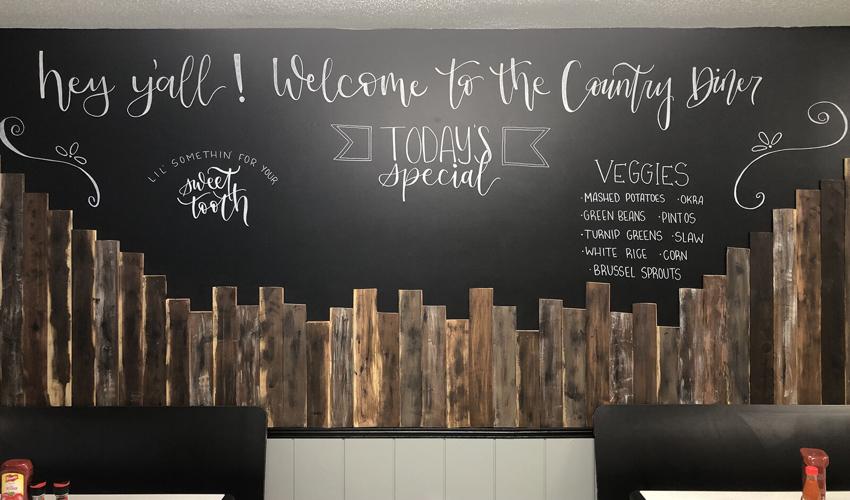 hey y'all! Welcome to the Country Diner
TODAY'S
special
LIL' SOMETHIN' FOR YOUR
sweet
tooth
VEGGIES
·MASHED POTATOES ·OKRA
·GREEN BEANS ·PINTOS
·TURNIP GREENS ·SLAW
·WHITE RICE ·CORN
·BRUSSEL SPROUTS